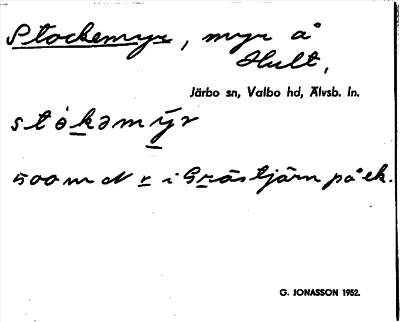 Stockemyr, myr å
Hult,
Järbo sn, Valbo hd, Älvsb. ln.
stòkəmy̆r
500 m N r i Gråstjärn på ek.
G. JONASSON 1952.